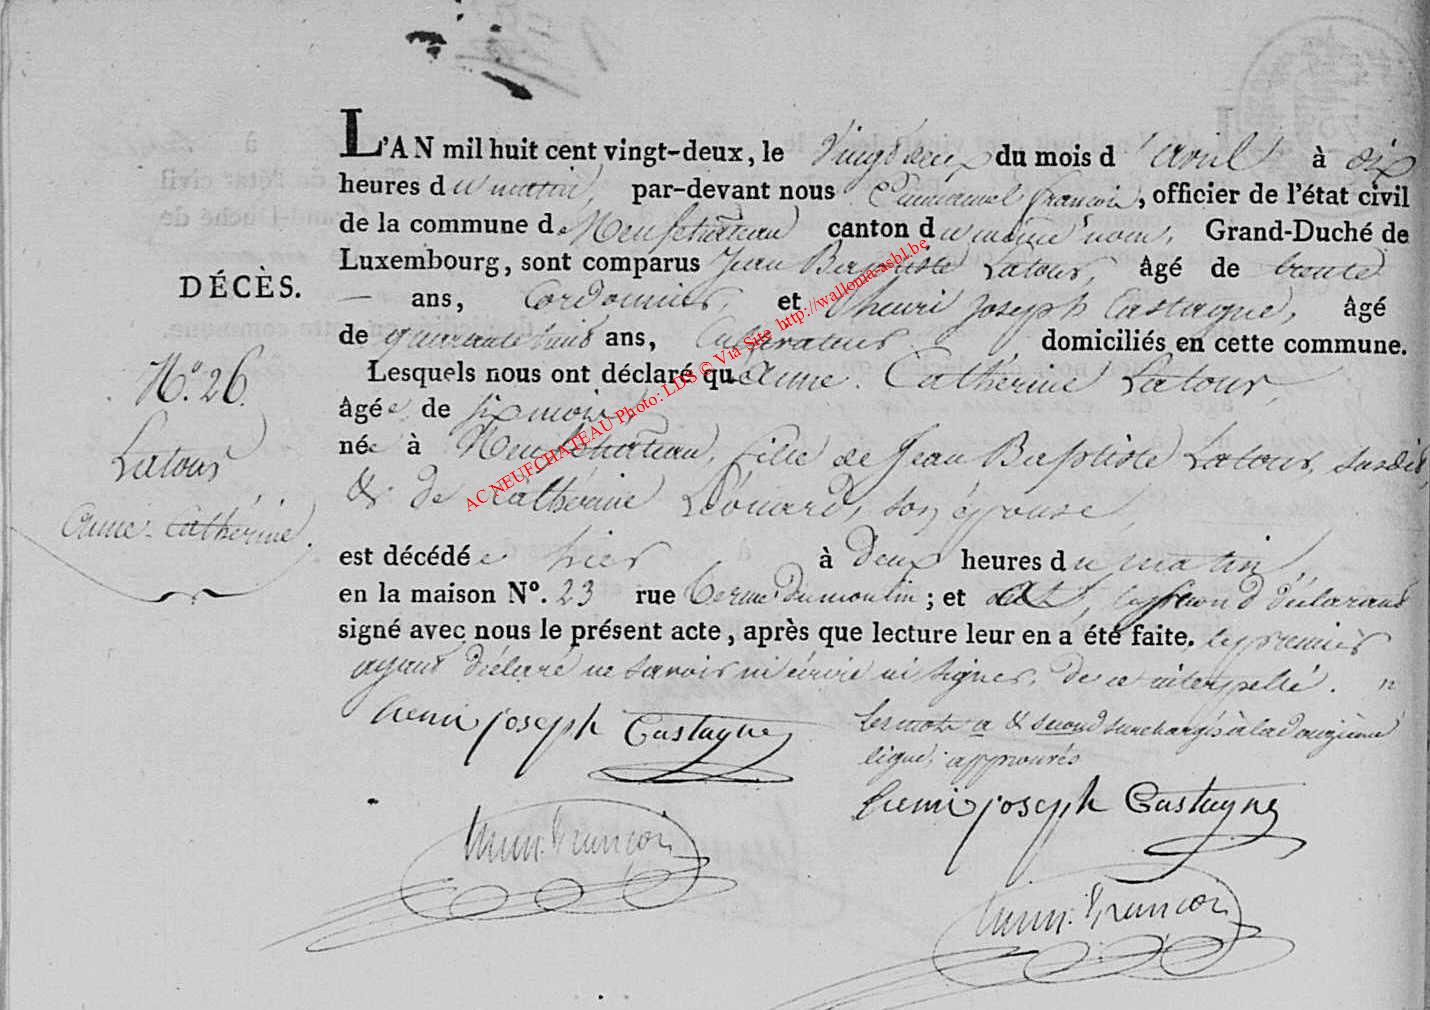 L'AN mil huit cent vingt-deux, le Vingt deux du mois d'avril à dix
heures du matin, par-devant nous Emmanuel françois, officier de l'état civil
de la commune de Neufchateau canton du même nom, Grand-Duché de
Luxembourg, sont comparus Jean Baptiste Latour, âgé de trente
DÉCÈS.
— ans, Cordonnier, et henri Joseph Castagne, âgé
de quarante huit ans, Cultivateur domiciliés en cette commune.
N.° 26.
Lesquels nous ont déclaré qu'Anne. Catherine Latour,
âgée de six mois,
Latour
née à Neufchateau, fille de Jean Baptiste Latour, susdit,
& de Catherine Léonard, son épouse,
Anne-Catherine.
est décédée hier à deux heures du matin,
en la maison N°. 23 rue dumoulin; et a, le second déclarant
signé avec nous le présent acte, après que lecture leur en a été faite. le premier
ayant déclaré ne savoir ni écrire ni signer, de ce interpellé.
henri joseph Castagne
les mots a & second surchargés à la douzième
ligne, approuvés
henri joseph Castagne
Emm. François
Emm. François
AC NEUFCHATEAU Photo: LDS © Via Site http://wallonia-asbl.be